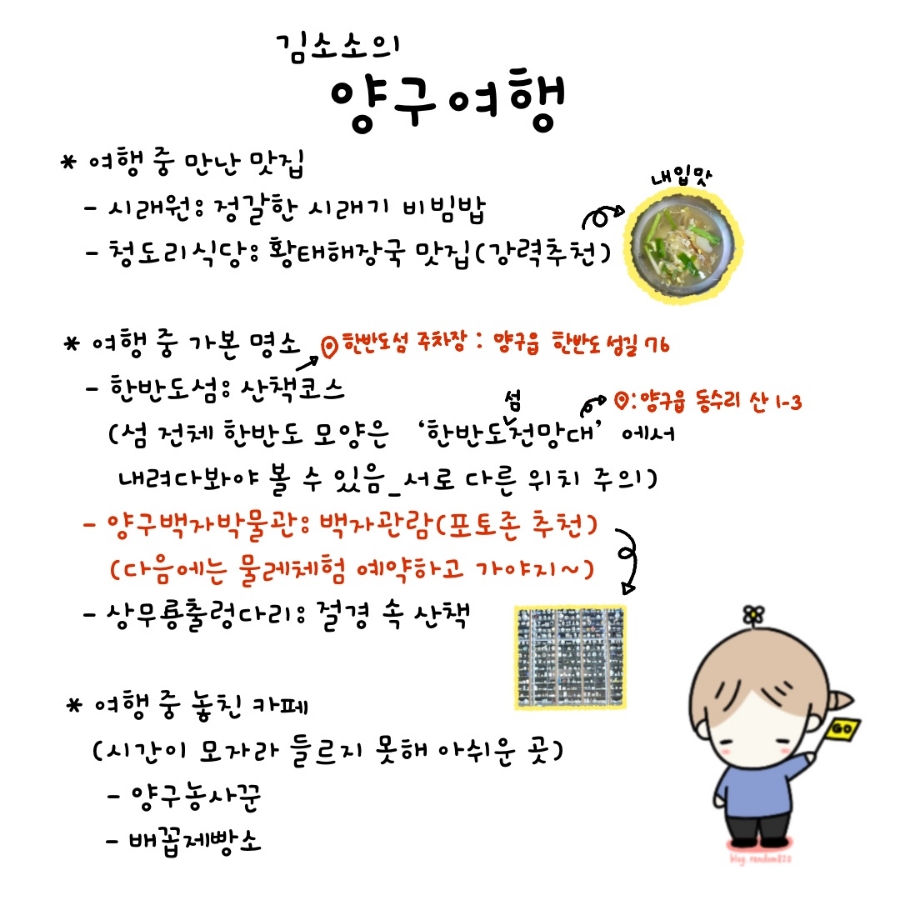 김소소의
양구여행
* 여행 중 만난 맛집
- 시래원: 정갈한 시래기 비빔밥
내입맛
- 청도리식당: 황태해장국 맛집(강력추천)
* 여행 중 가본 명소
한반도섬 주차장 : 양구읍 한반도섬길 76
- 한반도섬: 산책코스
:양구읍 동수리 산 1-3
(섬 전체 한반도 모양은 '한반도섬전망대' 에서
내려다봐야 볼 수 있음_서로 다른 위치 주의)
- 양구백자박물관: 백자관람(포토존 추천)
(다음에는 물레체험 예약하고 가야지~)
- 상무룡출렁다리: 절경 속 산책
* 여행 중 놓친 카페
(시간이 모자라 들르지 못해 아쉬운 곳)
GO
- 양구농사꾼
- 배꼽제빵소
blog.random820